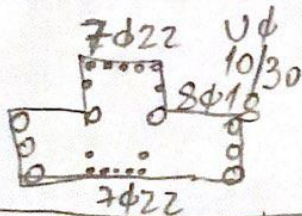 7ϕ22
Uϕ
10/30
8ϕ18
7ϕ22